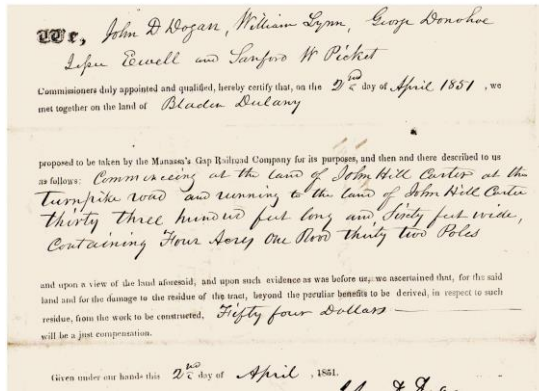 We, John D Dogan, William Lynn, George Donohoe
Jesse Ewell and Sanford W Picket
Commissioners duly appointed and qualified, hereby certify that, on the 2nd day of April 1851, we
met together on the land of Bladen Dulany
proposed to be taken by the Manassa's Gap Railroad Company for its purposes, and then and there described to us
as follows: Commenceing at the land of John Hill Carter at the
turnpike road and running to the land of John Hill Carter
thirty three hundred feet long and Sixty feet wide,
Containing Four Acres One Rood thirty two Poles
and upon a view of the land aforesaid, and upon such evidence as was before us, we ascertained that, for the said
land and for the damage to the residue of the tract, beyond the peculiar benefits to be derived, in respect to such
residue, from the work to be constructed, Fifty four Dollars
will be a just compensation.
Given under our hands this 2nd day of April, 1851.